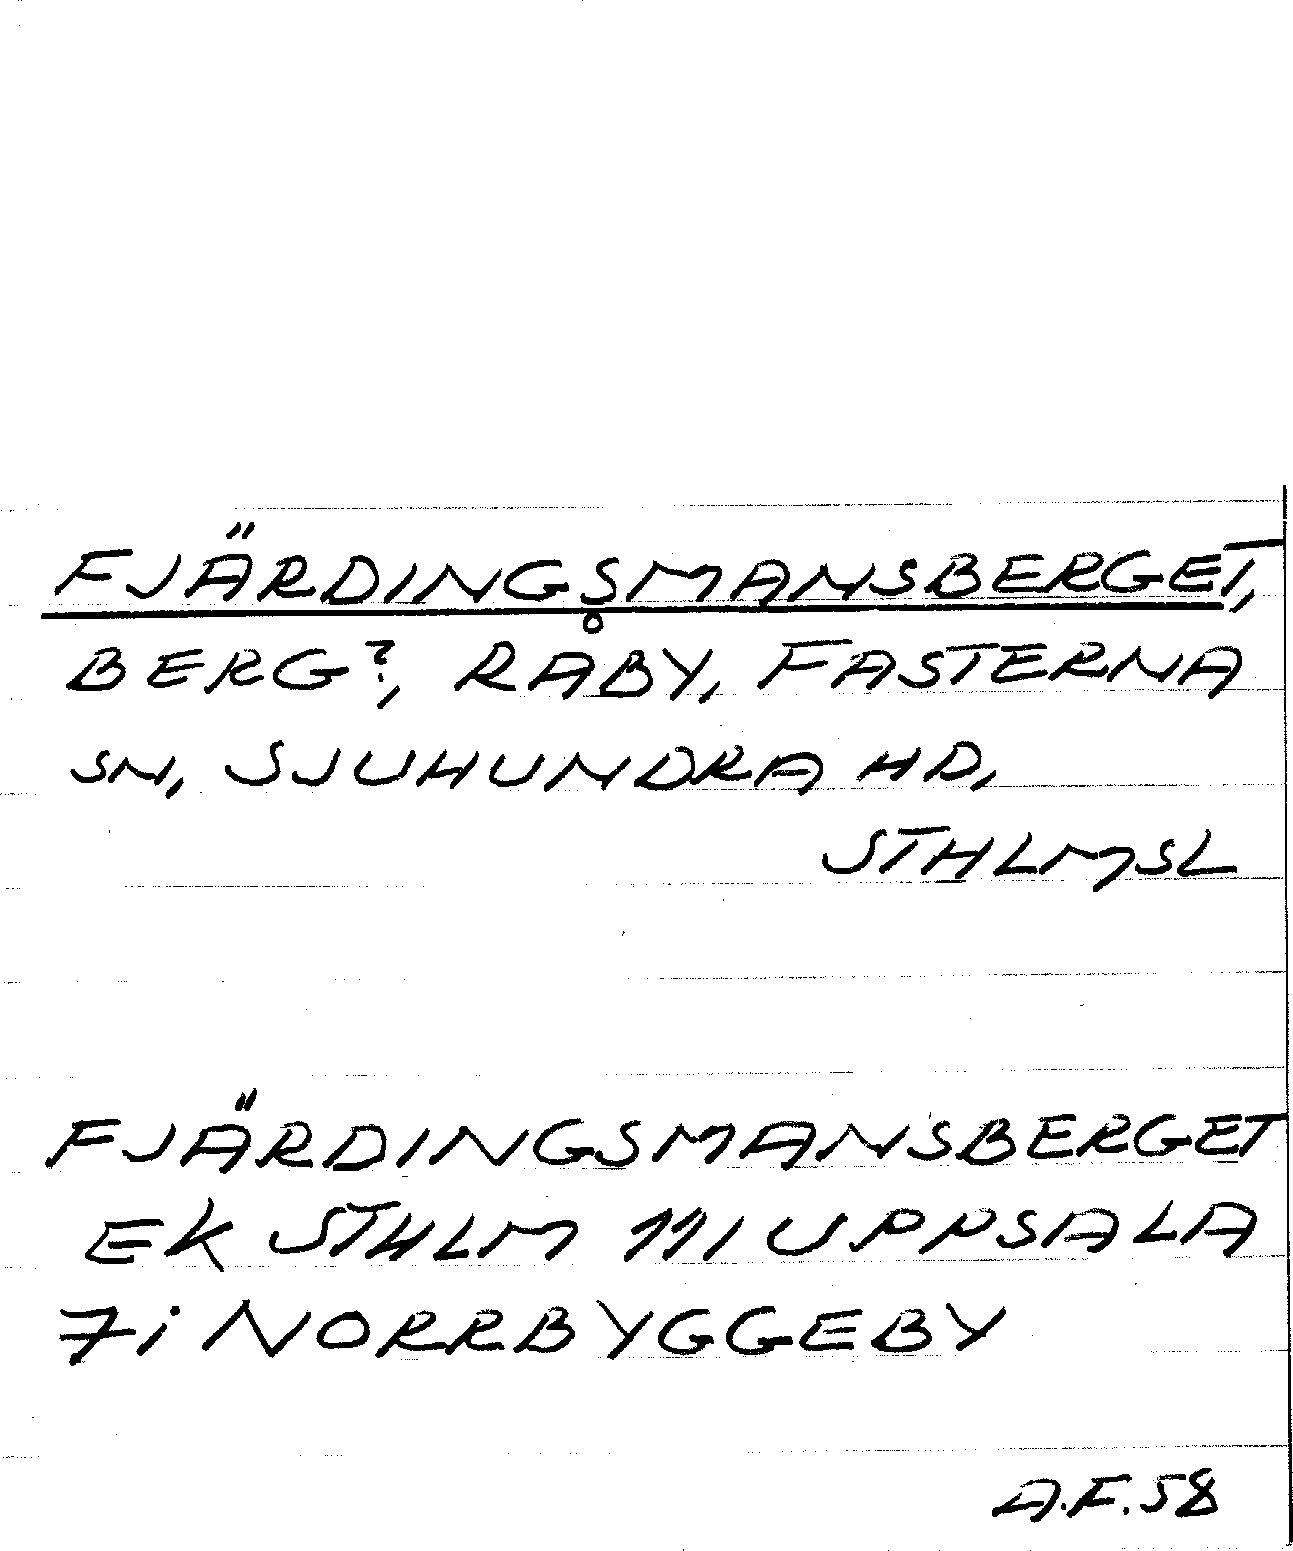 FJÄRDINGSMANSBERGET,
BERG?, RÅBY, FASTERNA
SN, SJUHUNDRA HD,
STHLMSL
FJÄRDINGSMANSBERGET
EK STHLM 111 UPPSALA
7i NORRBYGGEBY
A.F. 58